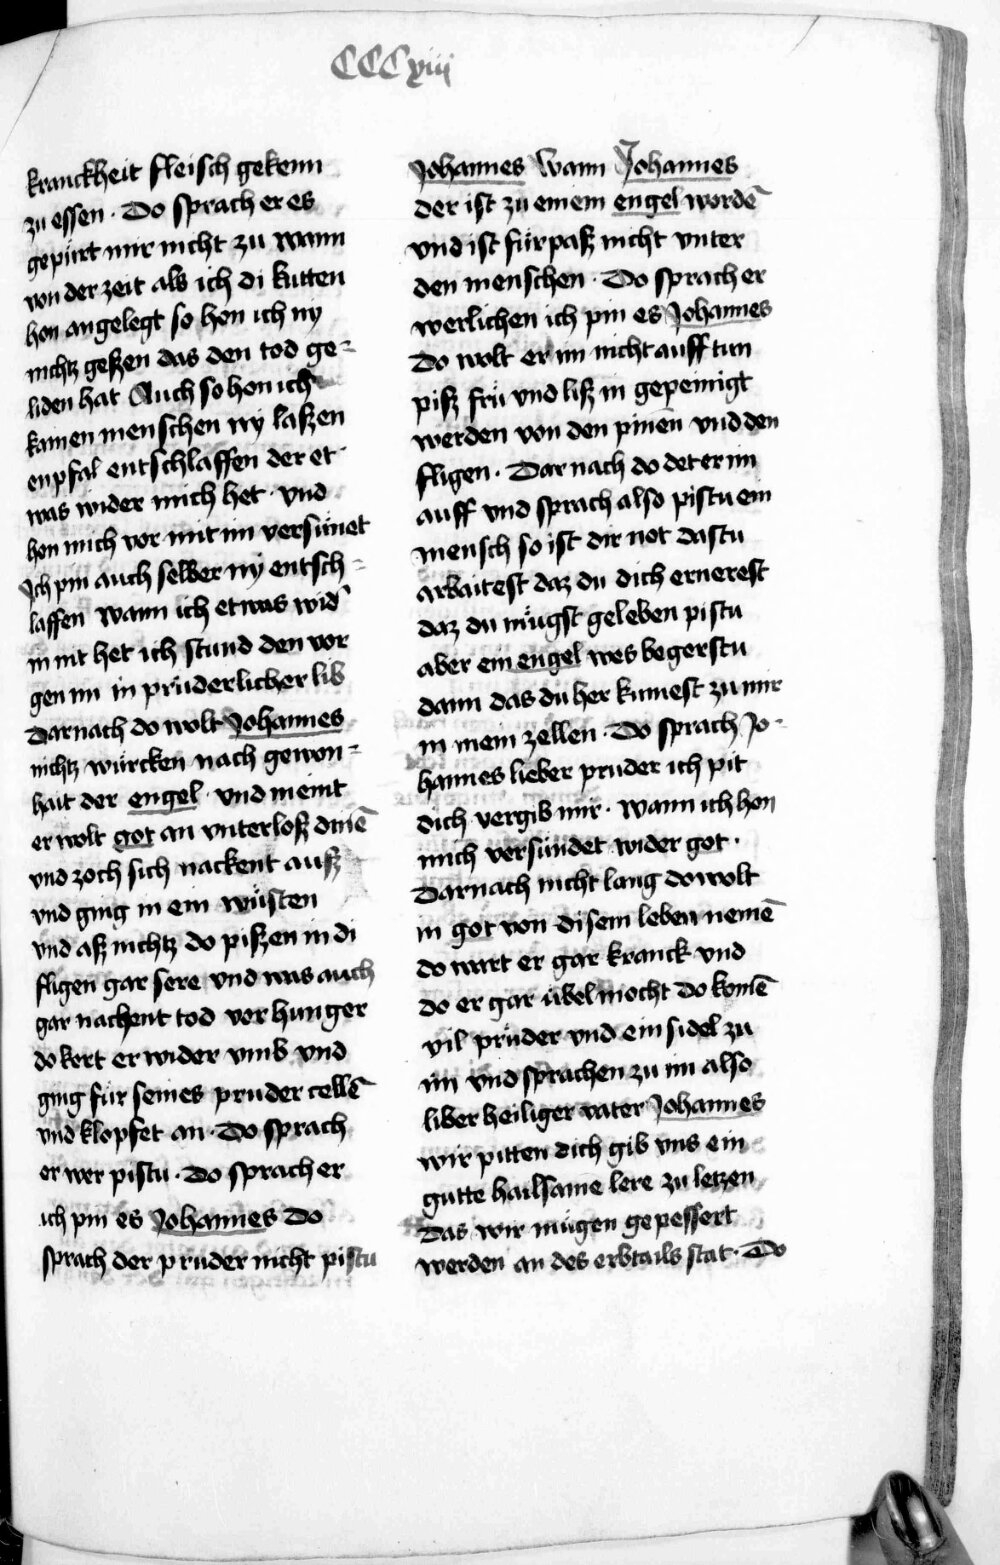 CCCxviii
kranckheit fleisch gekenn
zu essen · Do sprach er es
gepürt mir nicht zu wann
von der zeit als ich di kutten
hon angelegt so hon ich ny
nichtz geßen das den tod ge-
liden hat Auch so hon ich
kainen menschen ny laßen
enpfal entschlaffen der et
was wider mich het · vnd
hon mich vor mit im versünet
Ich pin auch selber ny entsch-
laffen wann ich etwas wid̄
in nit het ich stund den vor
gen im in prüderlicher lib
Darnach do wolt Johannes
nichtz würcken nach gewon-
hait der engel · vnd meint
er wolt got an vnterloß dinē
vnd zoch sich nackent auß
vnd ging in ein wüsten
vnd aß nichtz do pißen in di
fligen gar sere vnd was auch
gar nachent tod vor hunger
do kert er wider vmb vnd
ging für seines pruder cellē
vnd klopfet an · Do sprach
er wer pistu · Do sprach er
ich pin es Johannes Do
sprach der pruder nicht pistu
Johannes Wann Johannes
der ist zu einem engel wordē
vnd ist für paß nicht vnter
den menschen · Do sprach er
werlichen ich pin es Johannes
Do wolt er im nicht auff tun
piß frü vnd liß in gepeinigt
werden von den pinen vnd den
fligen · Dar nach do det er im
auff vnd sprach also pistu ein
mensch so ist dir not dastu
arbaitest daz du dich ernerest
daz du mügst geleben pistu
aber ein engel wes begerstu
dann das du her kumest zu mir
in mein zellen · Do sprach Jo-
hannes lieber pruder ich pit
dich vergib mir · wann ich hon
mich versündet wider got ·
Darnach nicht lang do wolt
in got von disem leben nemē
do wart er gar kranck vnd
do er gar übel mocht do komē
vil prüder vnd ein sidel zu
im vnd sprachen zu im also
liber heiliger vater Johannes
wir pitten dich gib vns ein
gutte hailsame lere zu letzen
Das wir mügen gepessert
werden an des erbtails stat · Do